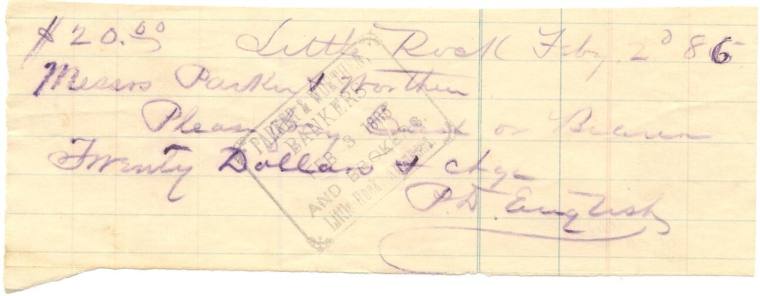 $20.00 Little Rock Feby. 2d 86
Messrs Parker & Worthen
Please Pay or Bearer
Twenty Dollars & chge
P.D. English
PARKER & WORTHEN,
BANKERS
FEB 3
AND BROKERS,
LITTLE ROCK